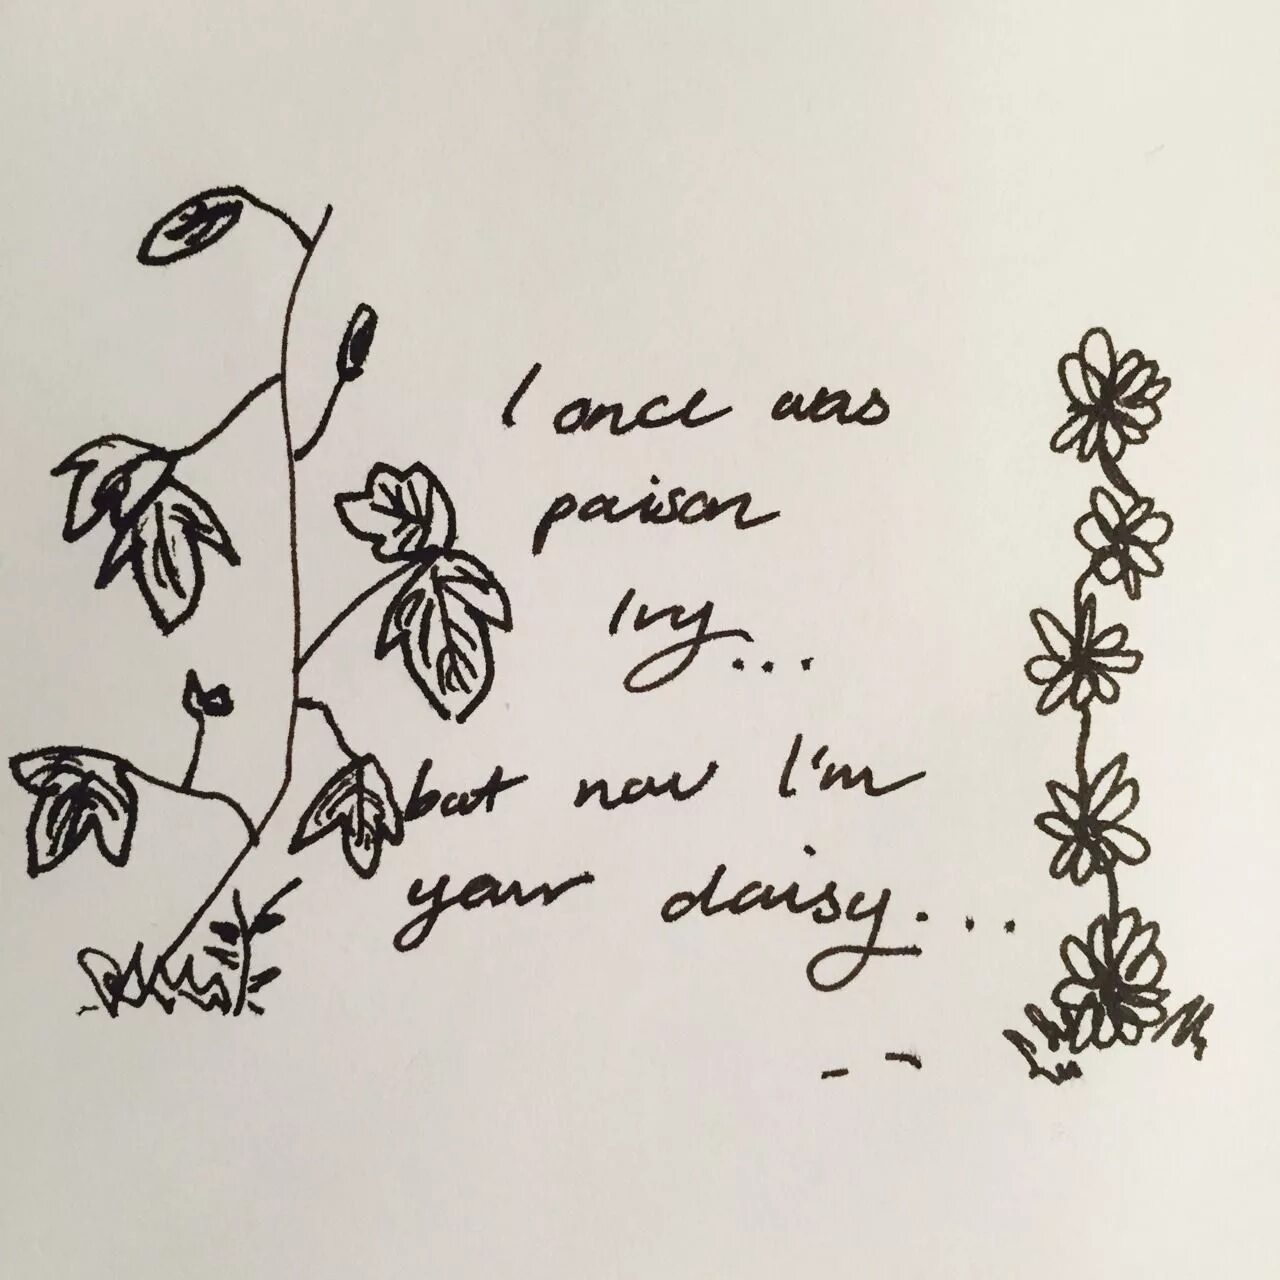 I once was
poison
Ivy...
but now I'm
your daisy...